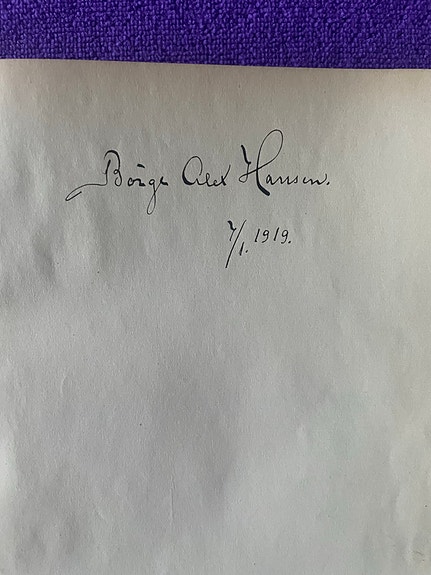 Börge Alex Hansen.
7/1. 1919.